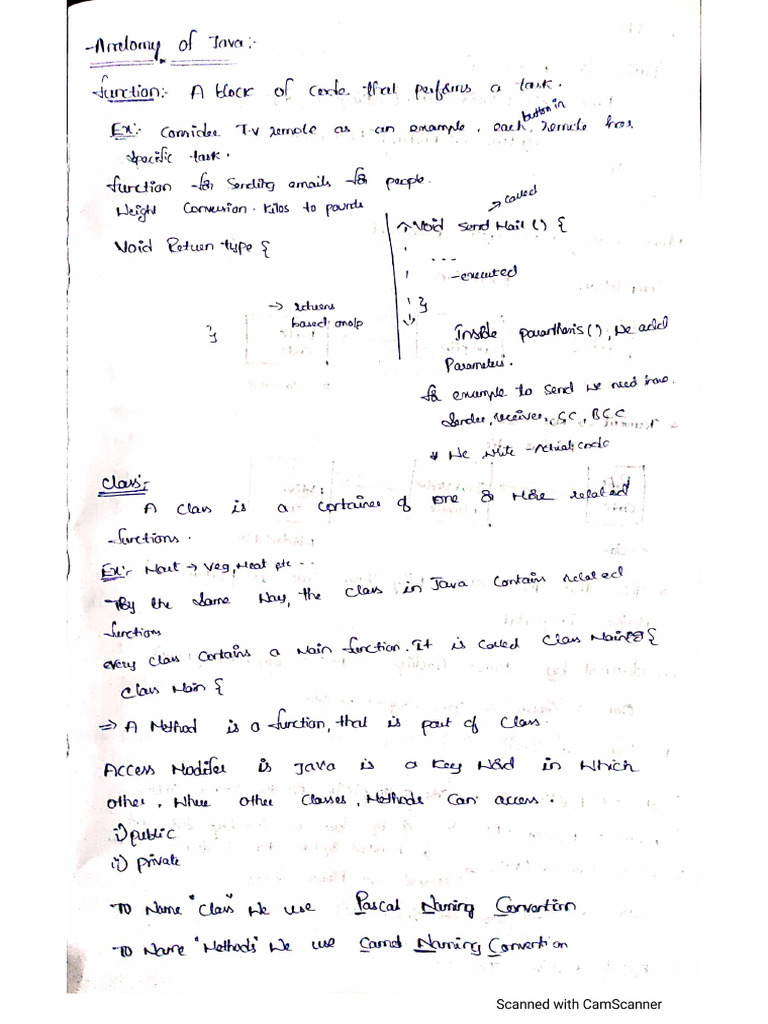 Anatomy of Java:-
function:- A block of code that performs a task.
Ex:- Consider T.v remote as an example, each button in remote has
specific task.
function for sending emails to people.
Weight Conversion. kilos to pounds
Void Return type {
→ returns
based on o/p
}
→ called
→ Void send Mail () {
...
-executed
}
Inside paranthesis (), We add
Parameters.
for example to send we need
Sender, receiver, CC, BCC
↓ We write Actual code
Class:-
A Class is a container of one or More related
functions.
Ex:- Mart → veg, Meat etc ...
→By the same Way, the class in Java contains related
functions
every class contains a Main function. It is called Class Main {
class Main {
⇒ A Method is a function, that is part of class.
Access Modifer is Java is a key Word in which
other, Where other classes, Methods Can access.
i) public
ii) private
To Name "class" We use Pascal Naming Convention
To Name "Methods" We use Camel Naming Convention
Scanned with CamScanner